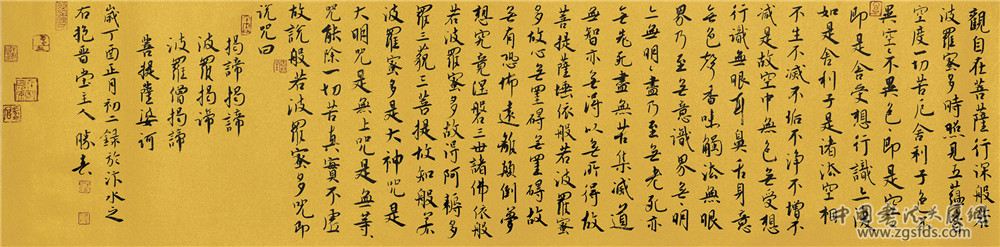 觀自在菩薩行深般若
波羅蜜多時照見五蘊皆
空度一切苦厄舍利子色不
異空空不異色色即是空空
即是色受想行識亦復
如是舍利子是諸法空相
不生不滅不垢不淨不增不
減是故空中無色無受想
行識無眼耳鼻舌身意
無色聲香味觸法無眼
界乃至無意識界無無明
亦無無明盡乃至無老死亦
無老死盡無苦集滅道
無智亦無得以無所得故
菩提薩埵依般若波羅蜜
多故心無罣礙無罣礙故
無有恐怖遠離顛倒夢
想究竟涅槃三世諸佛依般
若波羅蜜多故得阿耨多
羅三藐三菩提故知般若
波羅蜜多是大神咒是
大明咒是無上咒是無等等
咒能除一切苦真實不虛
故說般若波羅蜜多咒即
說咒曰
揭諦揭諦
波羅揭諦
波羅僧揭諦
菩提薩婆訶
歲丁酉正月初二錄於汴水之
右抱普堂主人勝
www.zgsfds.com